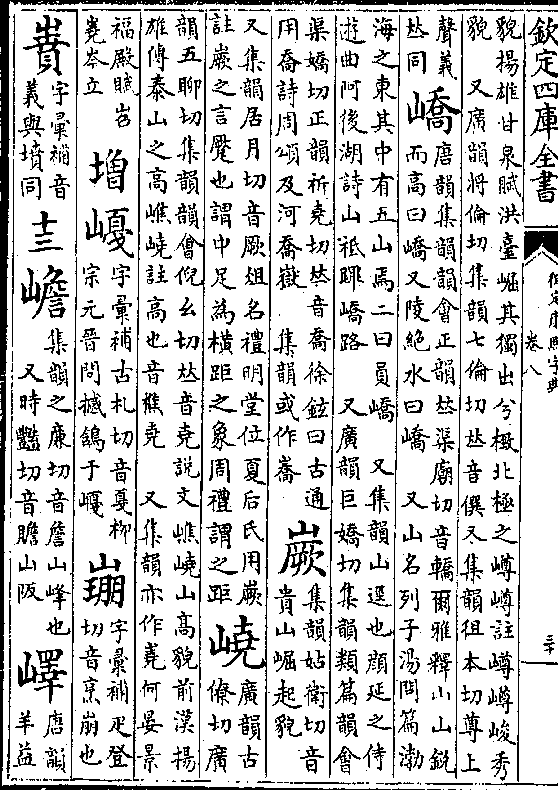 欽定四庫全書
御定康熙字典
卷八
三十
貌揚雄甘泉賦洪臺崛其獨出兮㨖北極之嶟嶟註嶟嶟峻秀
貌 又廣韻將倫切集韻七倫切𠀤音僎又集韻徂本切尊上
聲義
𠀤同
嶠
唐韻集韻韻會正韻𠀤渠廟切音轎爾雅釋山山銳
而高曰嶠又陵絶水曰嶠 又山名列子湯問篇渤
海之東其中有五山焉二曰員嶠 又集韻山逕也顔延之侍
遊曲阿後湖詩山祗蹕嶠路 又廣韻巨嬌切集韻類篇韻會
渠嬌切正韻祈堯切𠀤音喬徐鉉曰古通
用喬詩周頌及河喬嶽 集韻或作㠐
嶡
集韻姑衛切音
貴山崛起貌
又集韻居月切音厥俎名禮明堂位夏后氏用嶡
註嶡之言蹷也謂中足為橫距之象周禮謂之距
嶢
廣韻古
僚切廣
韻五聊切集韻韻會倪幺切𠀤音堯說文嶕嶢山高貌前漢揚
雄傳泰山之高嶕嶢註高也音樵堯 又集韻亦作嶤何晏景
福殿賦岧
嶤岑立
增
⿰山戛
字彙補古札切音戛柳
宗元晉問撼鷁于⿰山戛
字彙補疋登
切音烹崩也
⿱山賁
字彙補音
義與墳同
十三
嶦
集韻之廉切音詹山峰也
又時豔切音贍山阪
嶧
唐韻
羊益